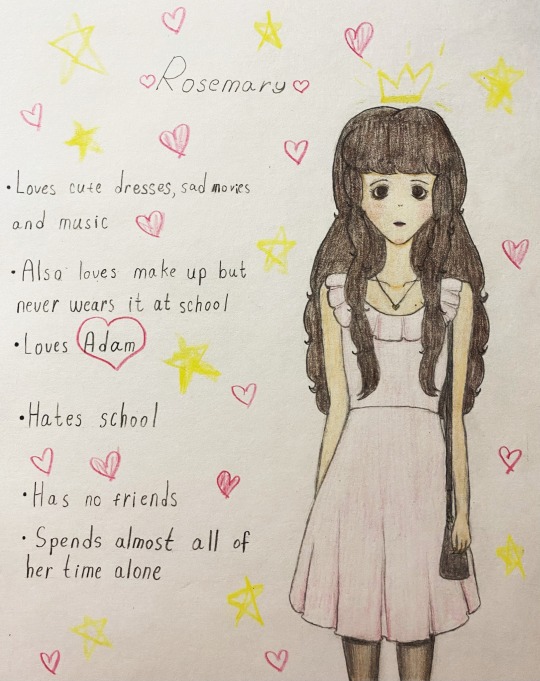 Rosemary
•Loves cute dresses, sad movies
and music
•Also loves make up but
never wears it at school
•Loves Adam
•Hates school
•Has no friends
•Spends almost all of
her time alone